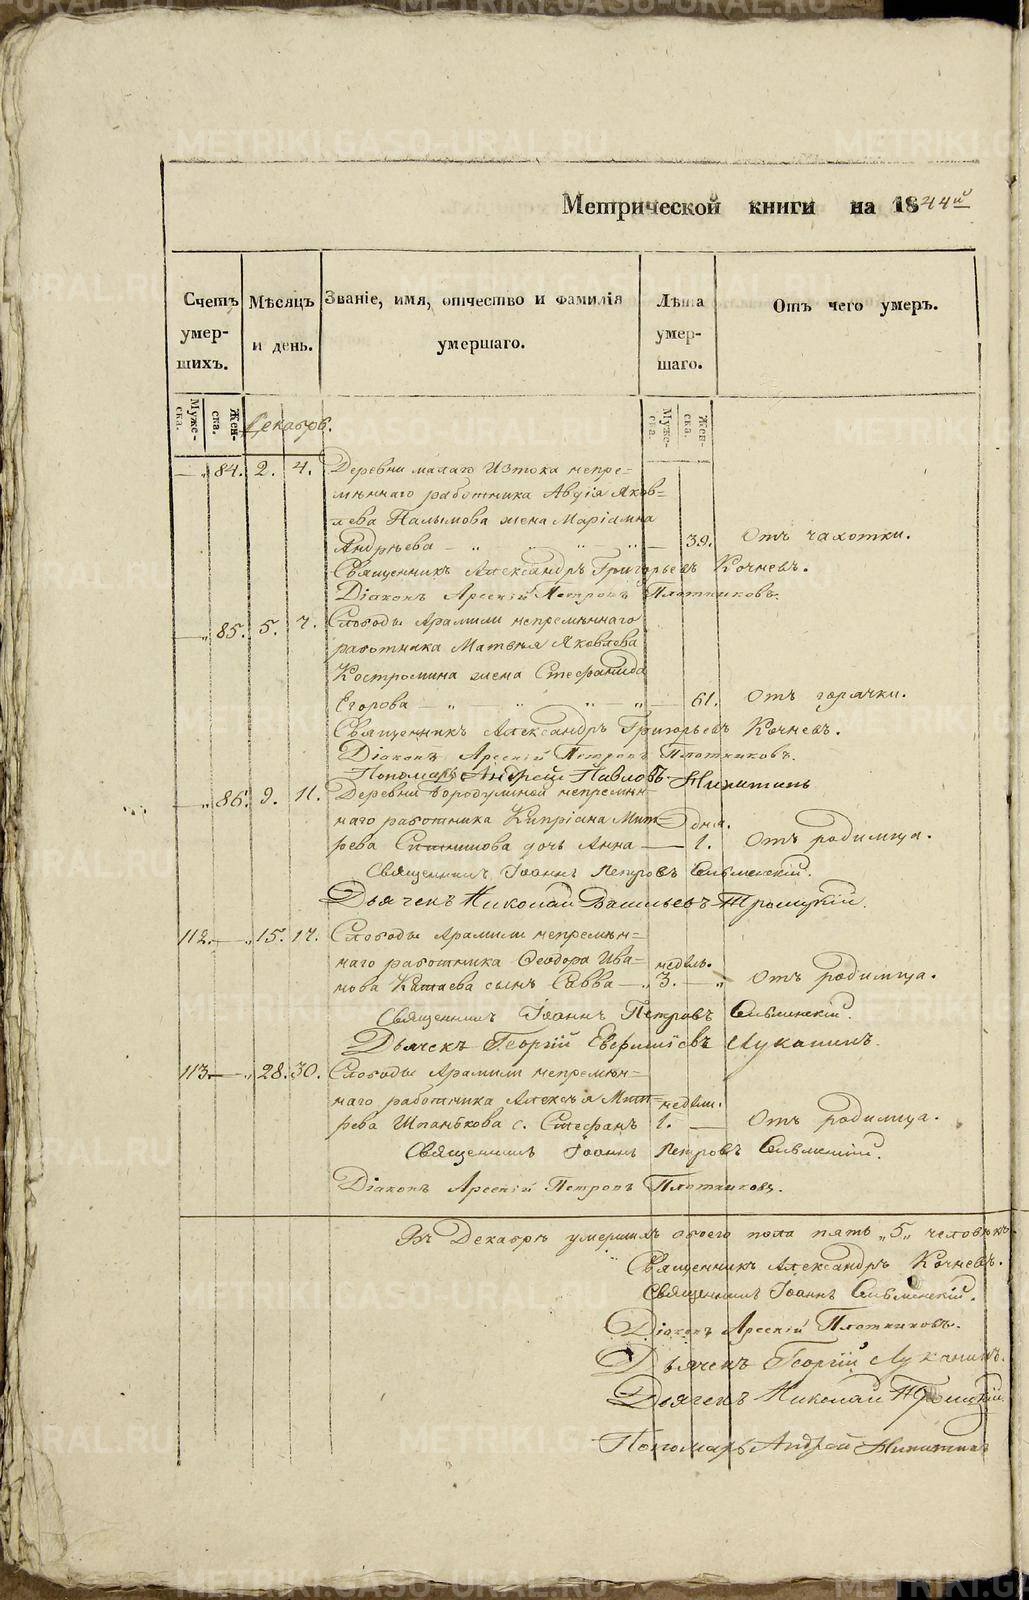 METRIKI.GASO-URAL.RU
Метрической книги на 1844й
Счетъ умер-шихъ.
Мѣсяцъ и день.
Званіе, имя, отчество и фамилія умершаго.
Лѣта умер-шаго.
Отъ чего умеръ.
Муже-ска. Жен-ска.
Декабрь.
Муже-ска. Жен-ска.
84. 2. 4. Деревни малаго Изтока непре=
мѣннаго работника Авдія Яков=
лева Палымова жена Маріамна
Андрѣева 39. Отъ чахотки.
Священникъ Александръ Григорьевъ Кочневъ.
Діаконъ Арсеній Петровъ Плотниковъ.
85. 5. 7. Слободы Арамили непремѣннаго
работника Матвѣя Яковлева
Костромина жена Стефанида
Егорова 61. Отъ горячки.
Священникъ Александръ Григорьевъ Кочневъ.
Діаконъ Арсеній Петровъ Плотниковъ.
Пономарь Андрей Павловъ Никитинъ
86. 9. 11. Деревни Бородулиной непремѣн=
наго работника Кипріана Мит= дня.
рева дочь Анна 1. Отъ родимца.
Священникъ Іоаннъ Петровъ Сильменскій.
Дьячекъ Николай Васильевъ Троицкій.
112. 15. 17. Слободы Арамили непремѣн=
наго работника Ѳеодора Ива= недѣль.
нова Китаева сынъ Савва 3. Отъ родимца.
Священникъ Іоаннъ Петровъ Сильменскій.
Дьячекъ Георгій Евфиміевъ Луканинъ.
113. 28. 30. Слободы Арамили непремѣн=
наго работника Алексѣя Мит= недѣли.
рева Шпанькова с. Стефанъ 1. Отъ родимца.
Священникъ Іоаннъ Петровъ Сильменскій.
Діаконъ Арсеній Петровъ Плотниковъ.
Въ Декабрѣ умершихъ обоего пола пять „5„ человѣкъ.
Священникъ Александръ Кочневъ.
Священникъ Іоаннъ Сильменскій.
Діаконъ Арсеній Плотниковъ.
Дьячекъ Георгій Луканинъ.
Дьячекъ Николай Троицкій.
Пономарь Андрей Никитинъ